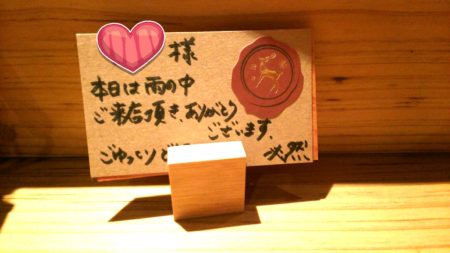 様
本日は雨の中
ご来店頂き、ありがとう
ございます。
ごゆっくりど